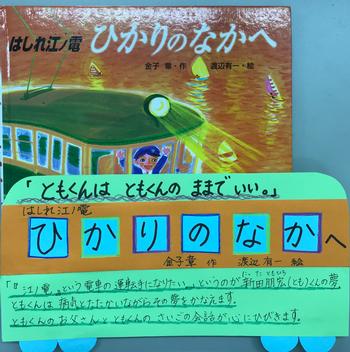 はしれ江ノ電 ひかりのなかへ
金子 章・作 渡辺有一・絵
「ともくんは ともくんの ままでいい。」
はしれ江ノ電
ひかりのなかへ
金子章 作 渡辺有一 絵
「"江ノ電"という電車の運転手になりたい。」というのが新田朋宏(とも)くんの夢
にったともひろ
ともくんは 病気とたたかいながらその夢をかなえます。
ともくんのお父さんとともくんのさいごの会話が心にひびきます。